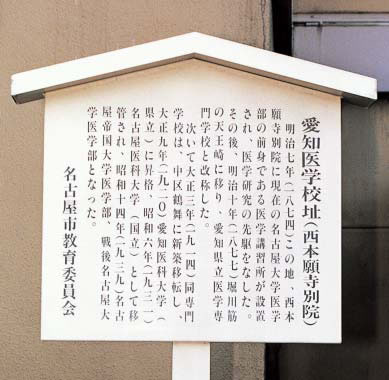 愛知医学校址(西本願寺別院)
明治七年(一八七四)この地、西本
願寺別院に現在の名古屋大学医学
部の前身である医学講習所が設置
され、医学研究の先駆をなした。
その後、明治十年(一八七七)堀川筋
の天王崎に移り、愛知県立医学専
門学校と改称した。
次いで大正三年(一九一四)同専門
学校は、中区鶴舞に新築移転し、
大正九年(一九二〇)愛知医科大学(
県立)に昇格、昭和六年(一九三一)
名古屋医科大学(国立)として移
管され、昭和十四年(一九三九)名古
屋帝国大学医学部、戦後名古屋大
学医学部となった。
名古屋市教育委員会